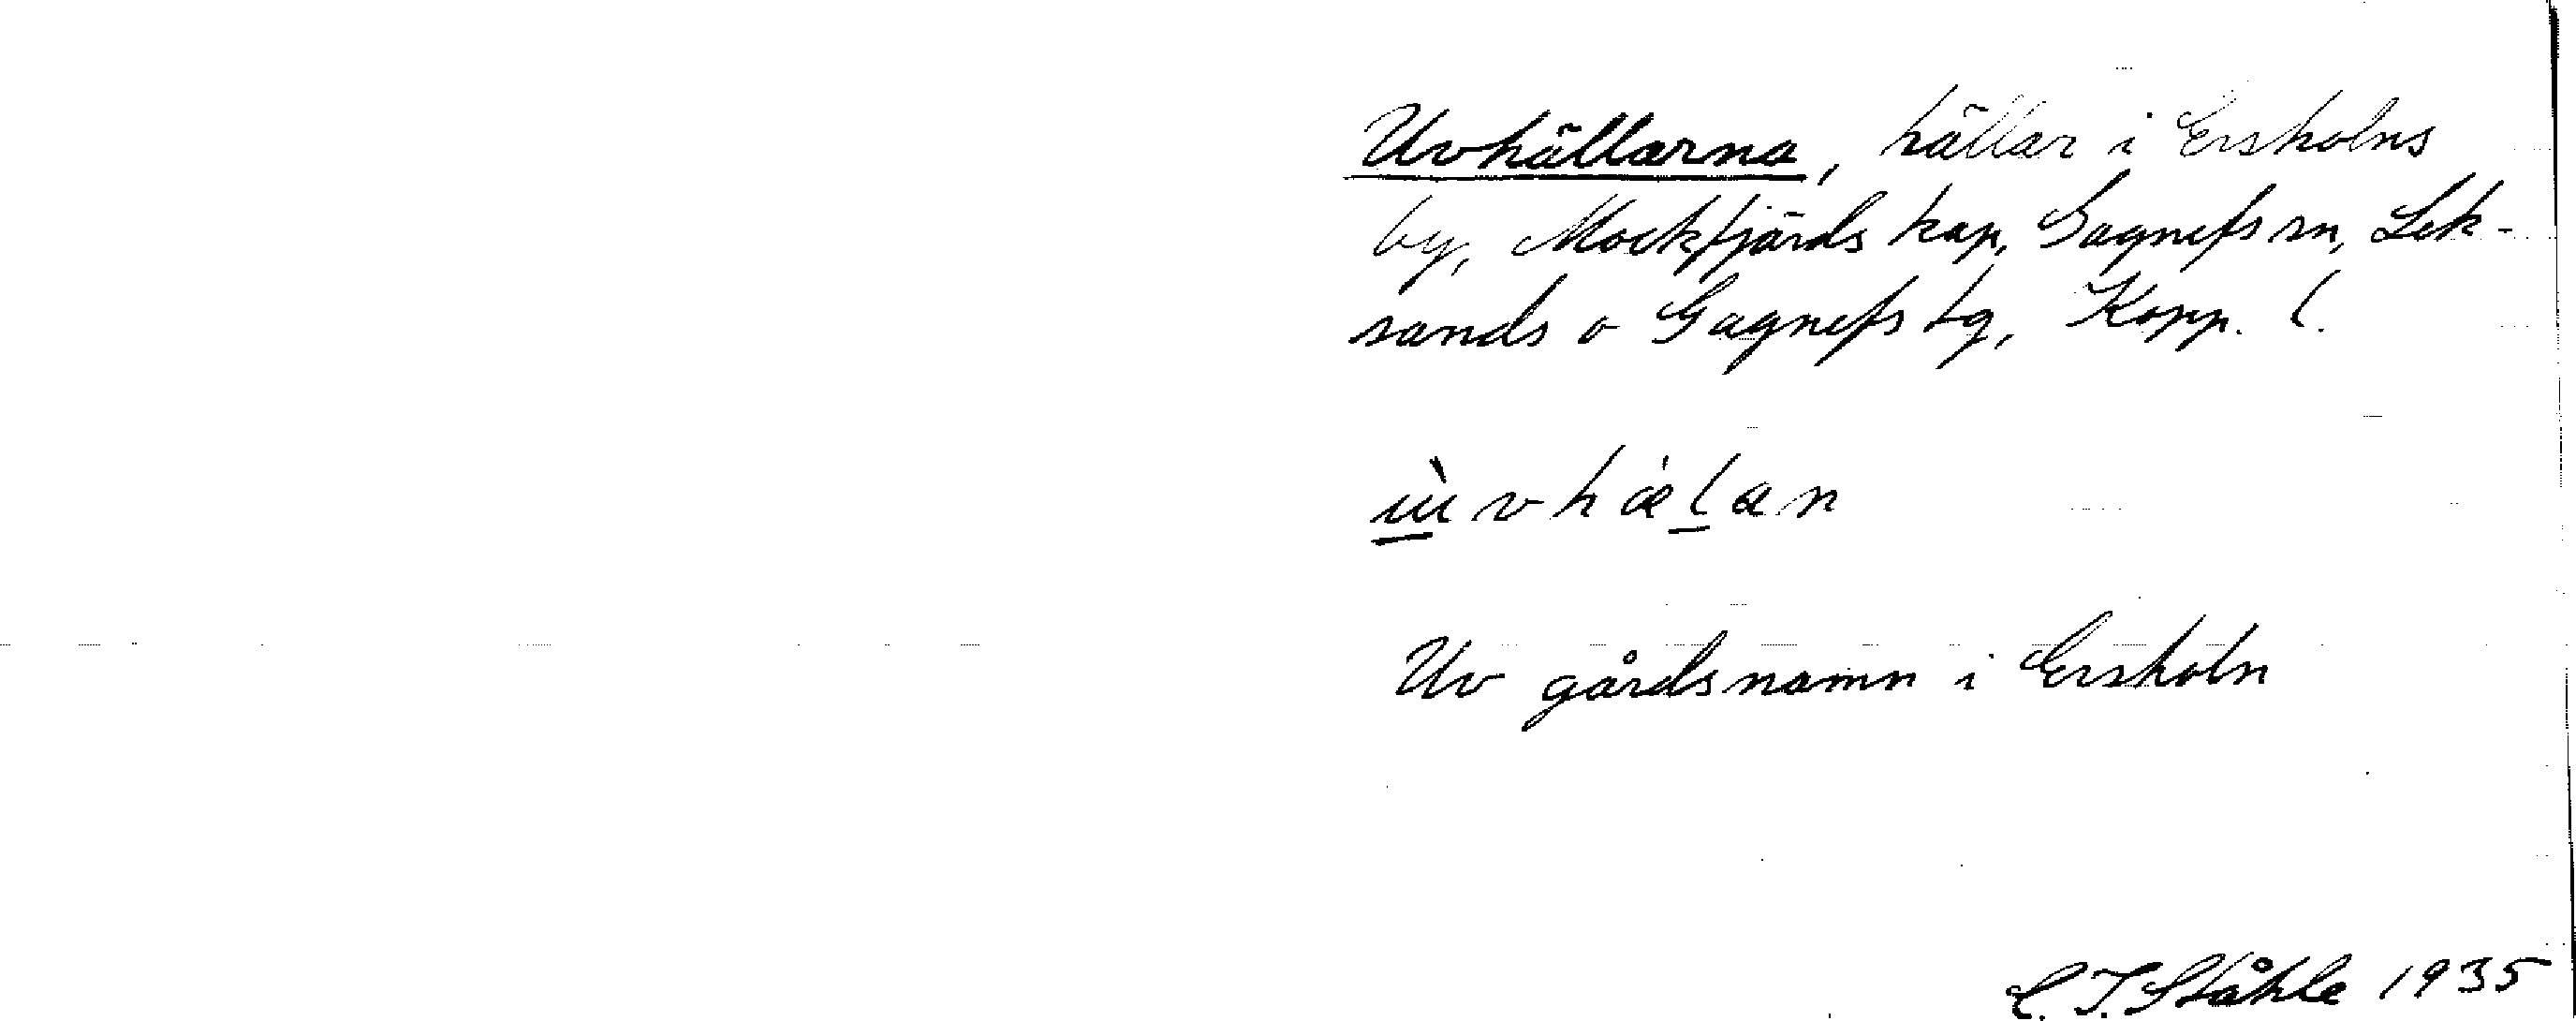 Uvhällarna, hällar i Ersholns
by, Mockfjärds kap, Gagnefs sn, Lek-
sands o Gagnefs tg, Kopp. l.
ɯ̀vhæ̀lan
Uv gårdsnamn i Ersholn
C. I. Ståhle 1935